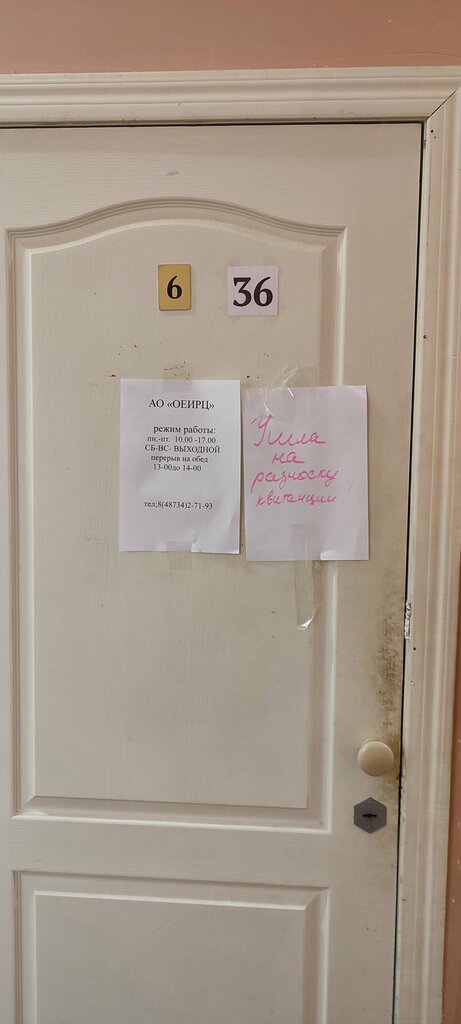 6
36
АО «ОЕИРЦ»
режим работы:
пн.-пт. 10.00 -17.00
СБ-ВС- ВЫХОДНОЙ
перерыв на обед
13-00до 14-00
тел;8(48734)2-71-93
Ушла
на
разноску
квитанции.